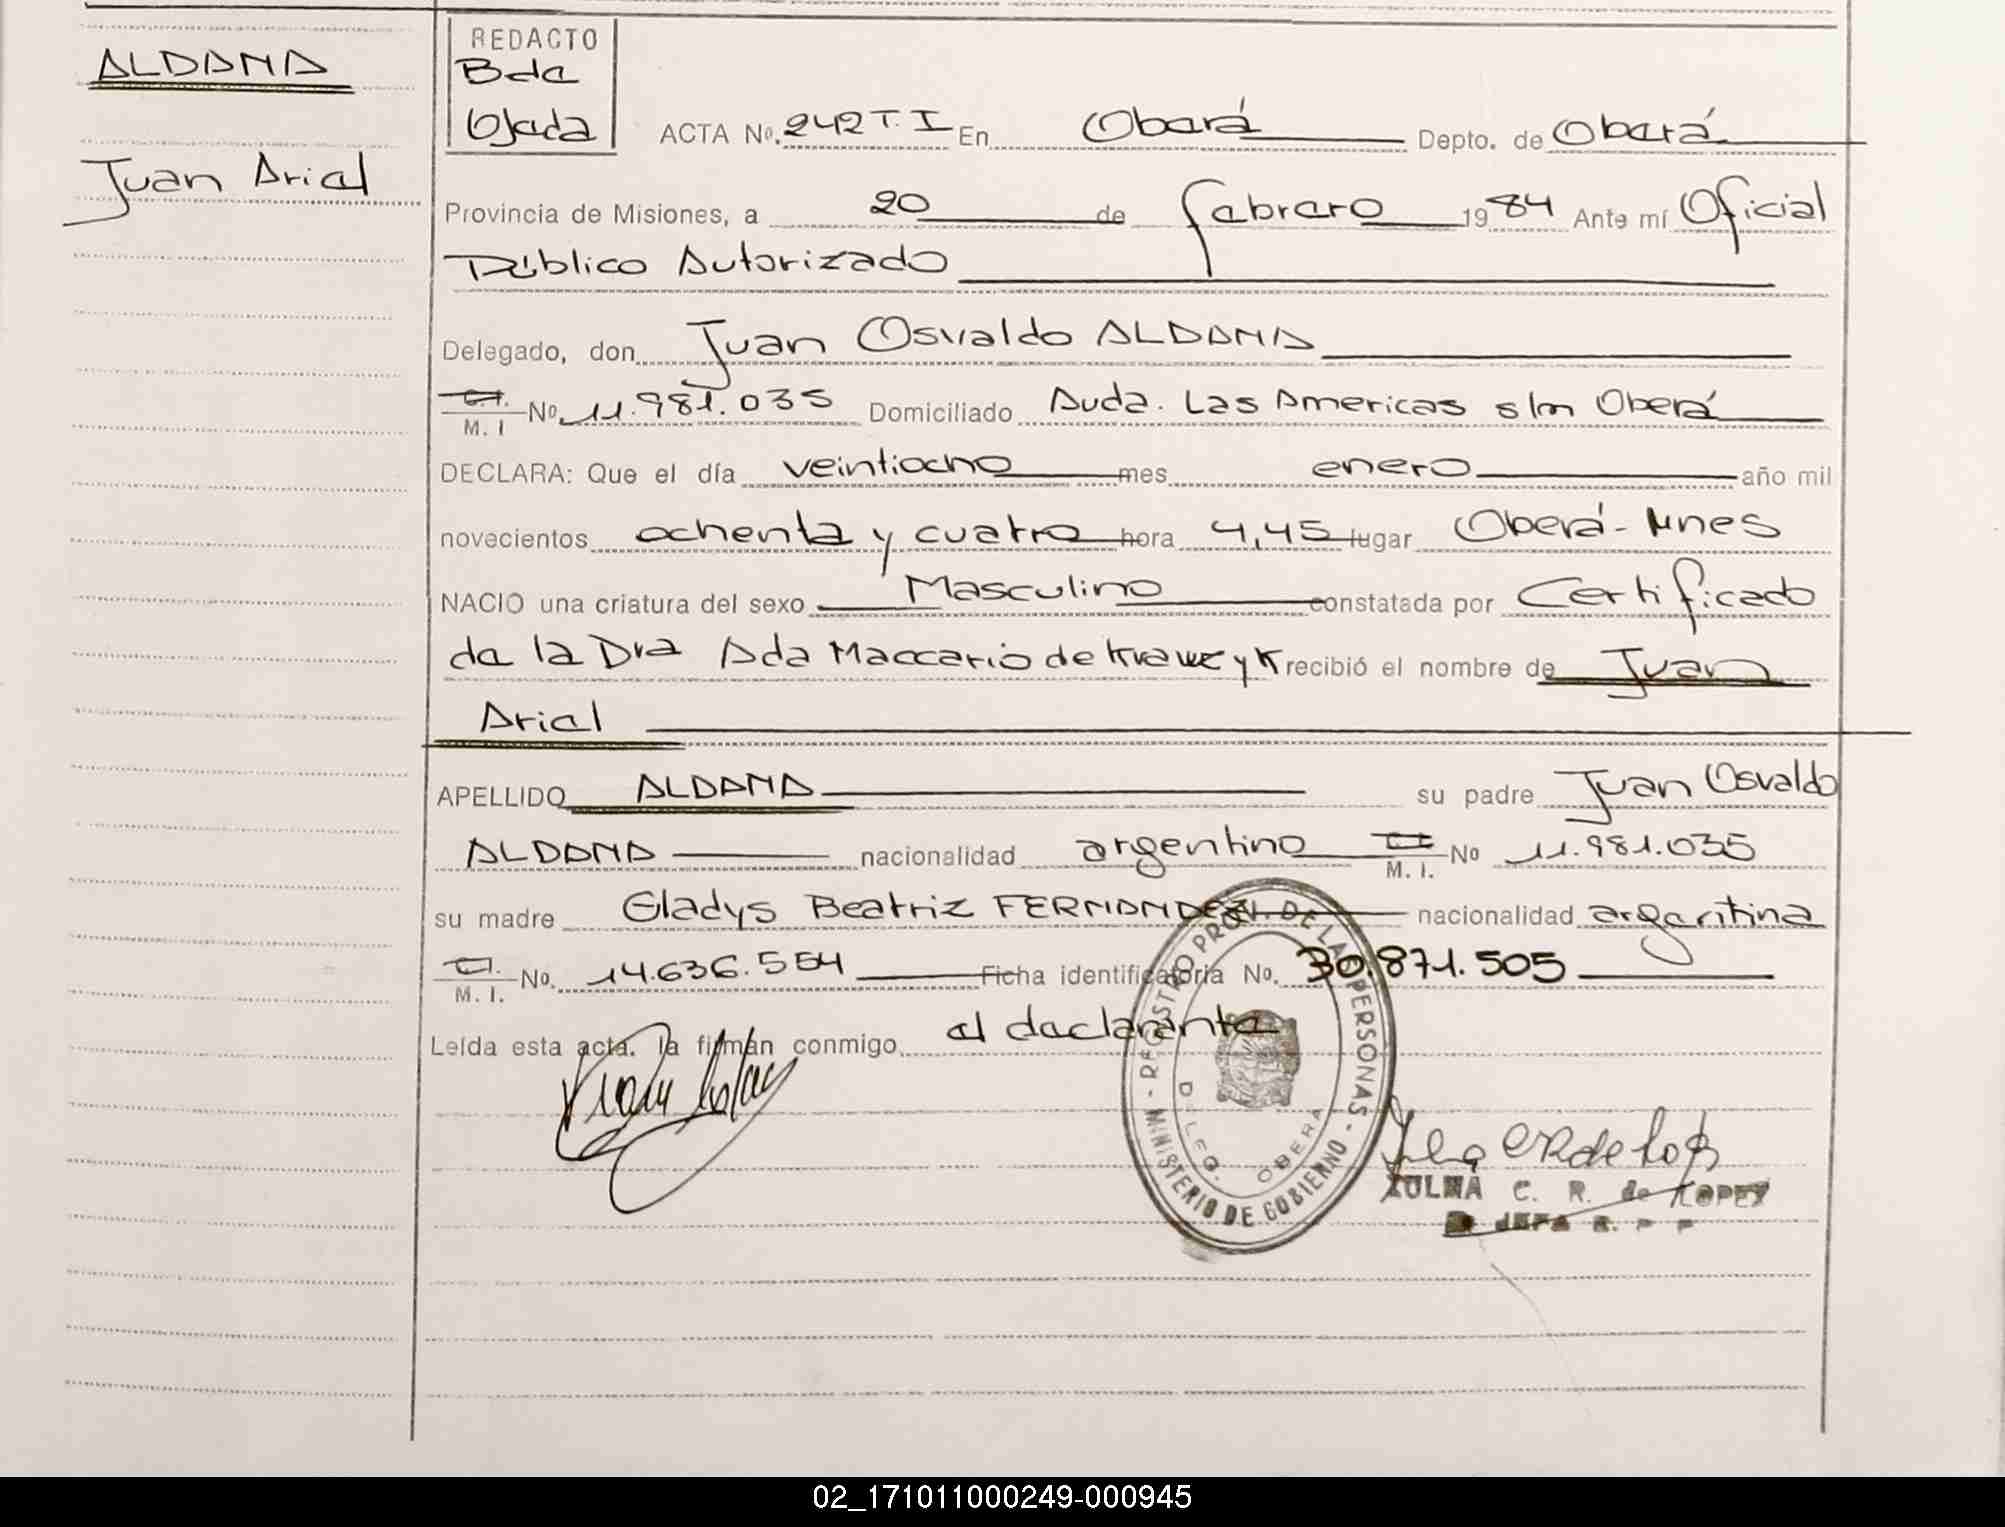 ALDANA
Juan Ariel
REDACTO
Bde
Ojeda
ACTA Nº. 242 T. I En Oberá Depto. de Oberá
Provincia de Misiones, a 20 de febrero 1984 Ante mí Oficial
Público Autorizado
Delegado, don Juan Osvaldo ALDANA
C.I.
M. I Nº. 11.981.035 Domiciliado Avda. Las Americas s/n Oberá
DECLARA: Que el día veintiocho mes enero año mil
novecientos ochenta y cuatro hora 4,45 lugar Oberá - Mnes
NACIO una criatura del sexo Masculino constatada por Certificado
de la Dra Ada Maccario de Krawczyk recibió el nombre de Juan
Ariel
APELLIDO ALDANA su padre Juan Osvaldo
ALDANA nacionalidad argentino M. I. No 11.981.035
su madre Gladys Beatriz FERNANDEZ nacionalidad argentina
C.I.
M. I. No. 14.636.554 Ficha identificatoria No. 30.871.505
Leída esta acta. la firman conmigo el declarante
MINISTERIO DE GOBIERNO - REGISTRO PROV. DE LAS PERSONAS -
DELEG. OBERA
ZULMA C. R. de LOPEZ
JEFA R. P P
02_171011000249-000945